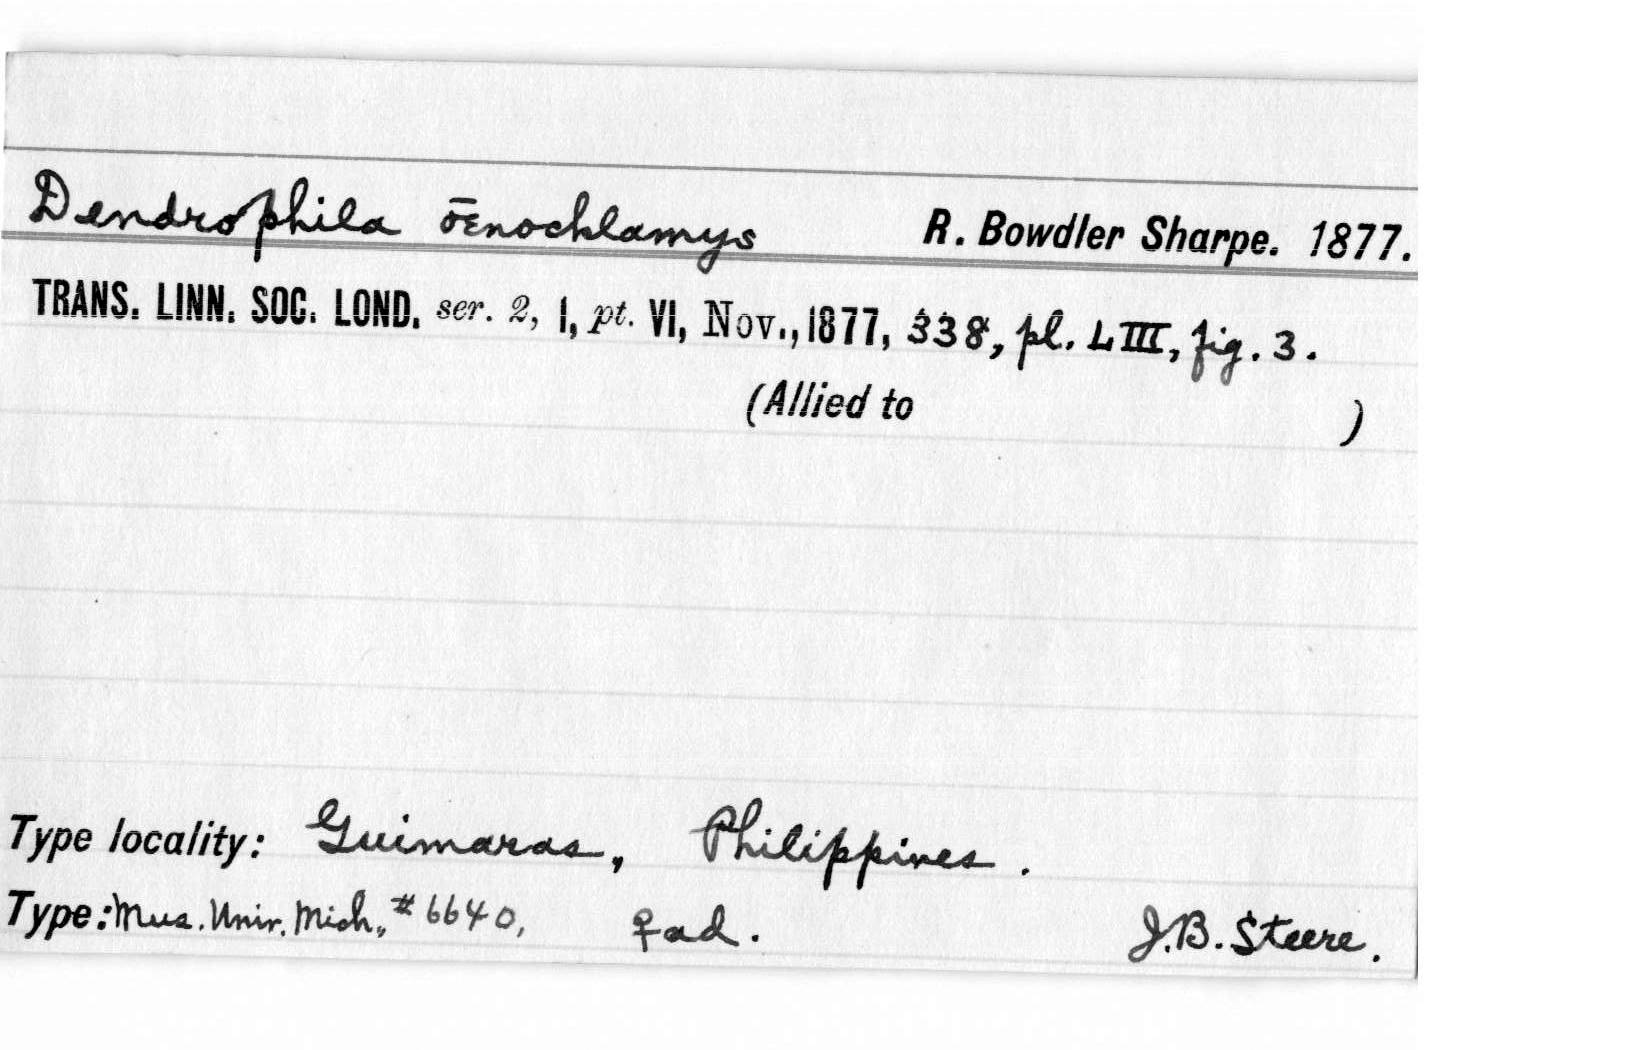 Dendrophila œnochlamys R. Bowdler Sharpe. 1877.
TRANS. LINN. SOC. LOND. ser. 2, 1, pt. VI, Nov., 1877, 338, pl. LIII, fig. 3.
(Allied to )
Type locality: Guimaras, Philippines.
Type: Mus. Univ. Mich., #6640, ♀ ad. J.B. Steere.